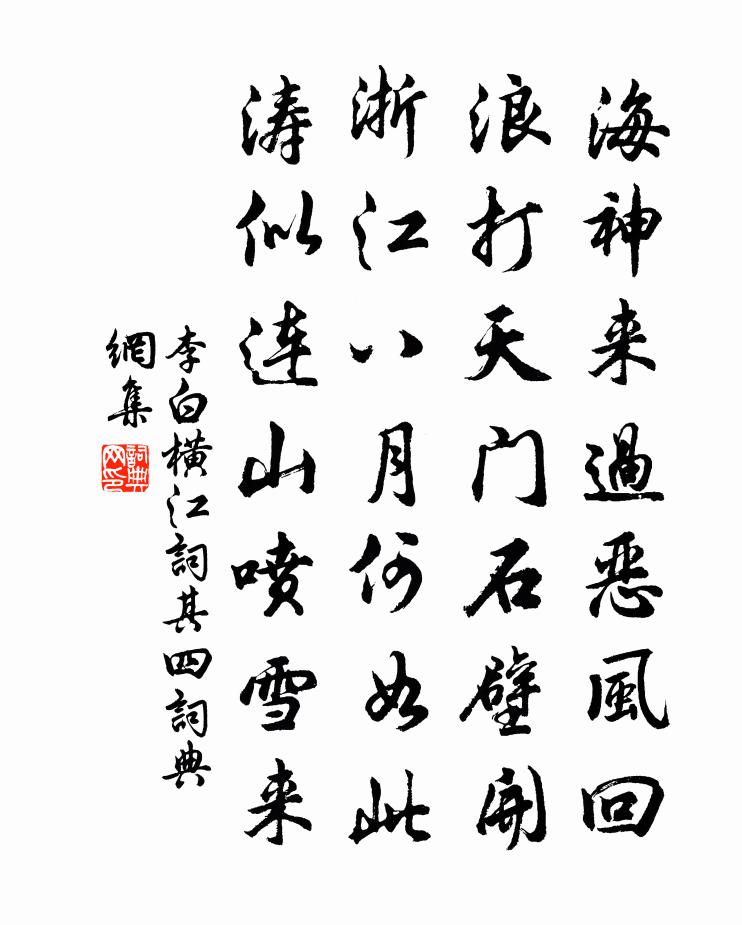 海神来過恶風回
浪打天门石壁開
浙江八月何如此
涛似连山喷雪来
李白橫江詞其四詞典
網集
詞典
网印